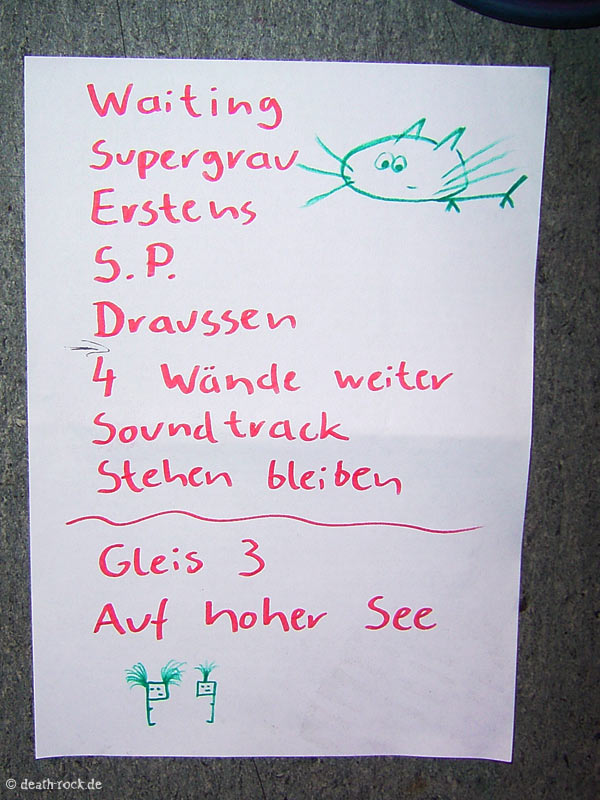 Waiting
Supergrau
Erstens
S.P.
Draussen
4 Wände weiter
Soundtrack
Stehen bleiben
Gleis 3
Auf hoher See
© death-rock.de